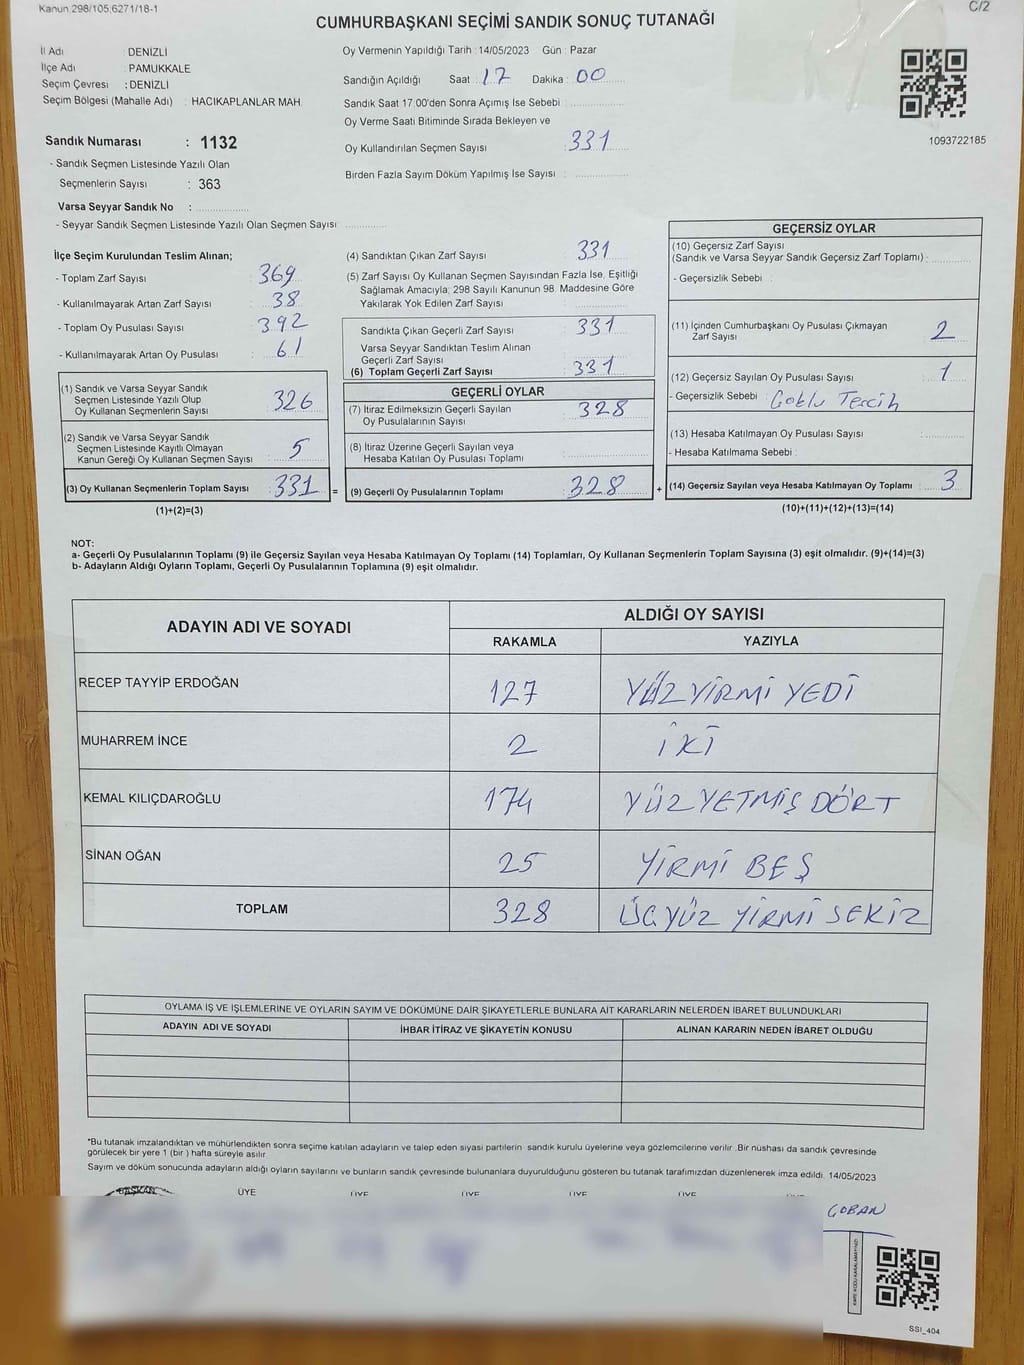 Kanun 298/105;6271/18-1
C/2
CUMHURBAŞKANI SEÇİMİ SANDIK SONUÇ TUTANAĞI
İl Adı : DENİZLİ
İlçe Adı : PAMUKKALE
Seçim Çevresi : DENİZLİ
Seçim Bölgesi (Mahalle Adı) : HACIKAPLANLAR MAH.
Sandık Numarası : 1132
- Sandık Seçmen Listesinde Yazılı Olan
Seçmenlerin Sayısı : 363
Varsa Seyyar Sandık No :
- Seyyar Sandık Seçmen Listesinde Yazılı Olan Seçmen Sayısı
Oy Vermenin Yapıldığı Tarih : 14/05/2023 Gün : Pazar
Sandığın Açıldığı Saat : 17 Dakika : 00
Sandık Saat 17:00'den Sonra Açımış İse Sebebi :
Oy Verme Saati Bitiminde Sırada Bekleyen ve
Oy Kullandırılan Seçmen Sayısı : 331
Birden Fazla Sayım Döküm Yapılmış İse Sayısı :
1093722185
İlçe Seçim Kurulundan Teslim Alınan;
- Toplam Zarf Sayısı : 369
- Kullanılmayarak Artan Zarf Sayısı : 38
- Toplam Oy Pusulası Sayısı : 392
- Kullanılmayarak Artan Oy Pusulası : 61
(1) Sandık ve Varsa Seyyar Sandık
Seçmen Listesinde Yazılı Olup
Oy Kullanan Seçmenlerin Sayısı : 326
(2) Sandık ve Varsa Seyyar Sandık
Seçmen Listesinde Kayıtlı Olmayan
Kanun Gereği Oy Kullanan Seçmen Sayısı : 5
(3) Oy Kullanan Seçmenlerin Toplam Sayısı : 331 =
(1)+(2)=(3)
(4) Sandıktan Çıkan Zarf Sayısı : 331
(5) Zarf Sayısı Oy Kullanan Seçmen Sayısından Fazla İse, Eşitliği
Sağlamak Amacıyla; 298 Sayılı Kanunun 98. Maddesine Göre
Yakılarak Yok Edilen Zarf Sayısı :
Sandıkta Çıkan Geçerli Zarf Sayısı : 331
Varsa Seyyar Sandıktan Teslim Alınan
Geçerli Zarf Sayısı :
(6) Toplam Geçerli Zarf Sayısı : 331
GEÇERLİ OYLAR
(7) İtiraz Edilmeksizin Geçerli Sayılan
Oy Pusulalarının Sayısı : 328
(8) İtiraz Üzerine Geçerli Sayılan veya
Hesaba Katılan Oy Pusulası Toplamı :
(9) Geçerli Oy Pusulalarının Toplamı : 328 +
GEÇERSİZ OYLAR
(10) Geçersiz Zarf Sayısı
(Sandık ve Varsa Seyyar Sandık Geçersiz Zarf Toplamı) :
- Geçersizlik Sebebi :
(11) İçinden Cumhurbaşkanı Oy Pusulası Çıkmayan
Zarf Sayısı : 2
(12) Geçersiz Sayılan Oy Pusulası Sayısı : 1
- Geçersizlik Sebebi : Çoklu Tercih
(13) Hesaba Katılmayan Oy Pusulası Sayısı :
- Hesaba Katılmama Sebebi :
(14) Geçersiz Sayılan veya Hesaba Katılmayan Oy Toplamı : 3
(10)+(11)+(12)+(13)=(14)
NOT:
a- Geçerli Oy Pusulalarının Toplamı (9) ile Geçersiz Sayılan veya Hesaba Katılmayan Oy Toplamı (14) Toplamları, Oy Kullanan Seçmenlerin Toplam Sayısına (3) eşit olmalıdır. (9)+(14)=(3)
b- Adayların Aldığı Oyların Toplamı, Geçerli Oy Pusulalarının Toplamına (9) eşit olmalıdır.
ADAYIN ADI VE SOYADI
ALDIĞI OY SAYISI
RAKAMLA YAZIYLA
RECEP TAYYİP ERDOĞAN 127 YÜZ YİRMİ YEDİ
MUHARREM İNCE 2 İKİ
KEMAL KILIÇDAROĞLU 174 YÜZ YETMİŞ DÖRT
SİNAN OĞAN 25 YİRMİ BEŞ
TOPLAM 328 ÜÇ YÜZ YİRMİ SEKİZ
OYLAMA İŞ VE İŞLEMLERİNE VE OYLARIN SAYIM VE DÖKÜMÜNE DAİR ŞİKAYETLERLE BUNLARA AİT KARARLARIN NELERDEN İBARET BULUNDUKLARI
ADAYIN ADI VE SOYADI İHBAR İTİRAZ VE ŞİKAYETİN KONUSU ALINAN KARARIN NEDEN İBARET OLDUĞU
*Bu tutanak imzalandıktan ve mühürlendikten sonra seçime katılan adayların ve talep eden siyasi partilerin sandık kurulu üyelerine veya gözlemcilerine verilir. Bir nüshası da sandık çevresinde
görülecek bir yere 1 (bir ) hafta süreyle asılır.
Sayım ve döküm sonucunda adayların aldığı oyların sayılarını ve bunların sandık çevresinde bulunanlara duyurulduğunu gösteren bu tutanak tarafımızdan düzenlenerek imza edildi. 14/05/2023
BAŞKAN ÜYE ÜYE ÜYE ÜYE ÜYE
ÇOBAN
SSI_404